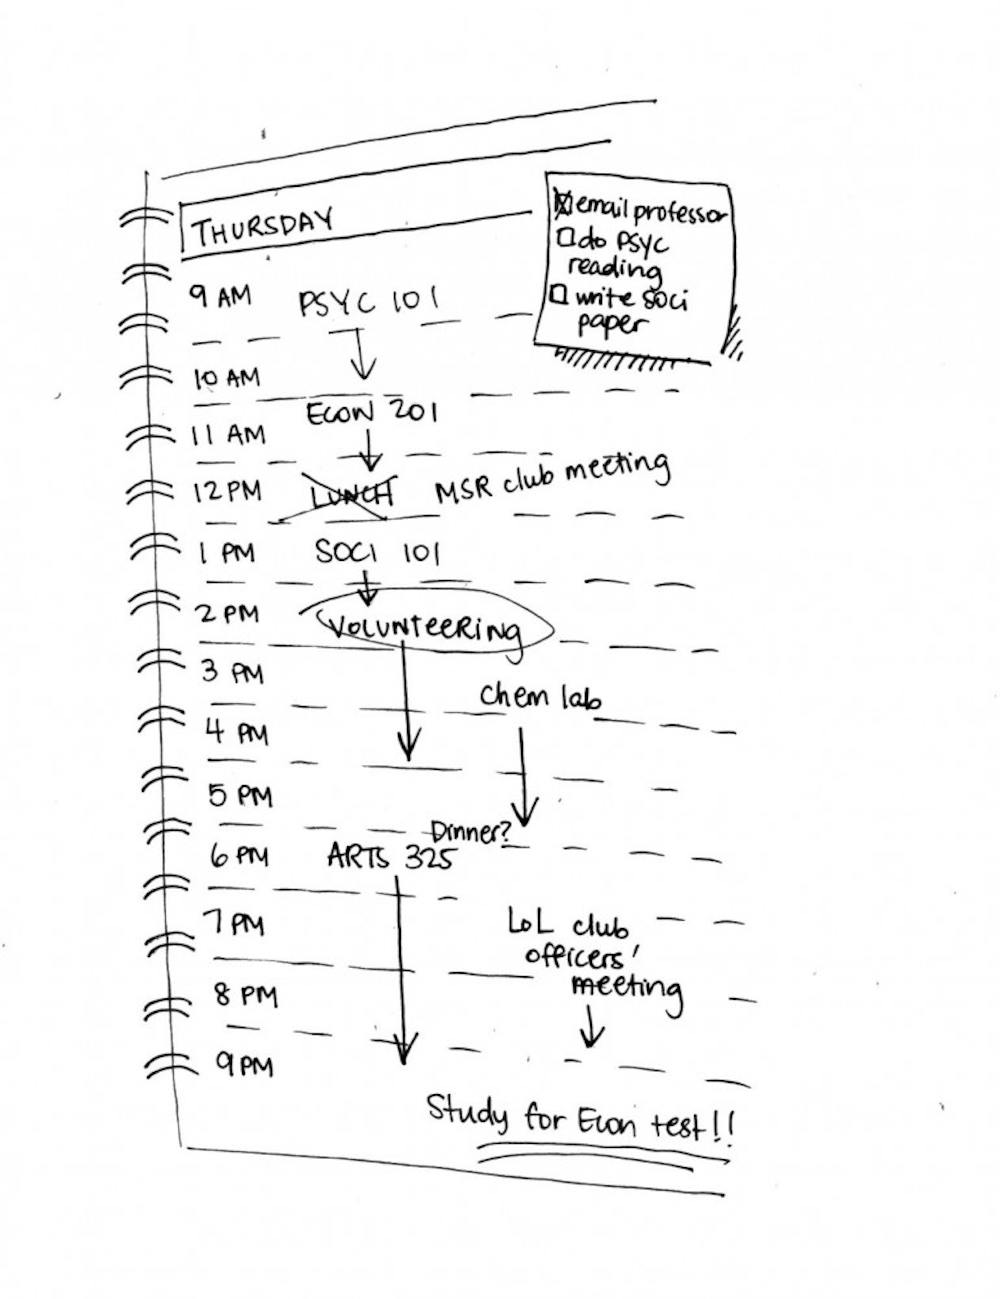 THURSDAY
☒ email professor
☐ do PSYC
reading
☐ write Soci
paper
9 AM PSYC 101
10 AM
ECON 201
11 AM
12 PM LUNCH MSR club meeting
1 PM SOCI 101
2 PM VOLUNTEERING
3 PM
Chem lab
4 PM
5 PM
Dinner?
6 PM ARTS 325
7 PM LoL club
officers'
meeting
8 PM
9 PM
Study for Econ test!!